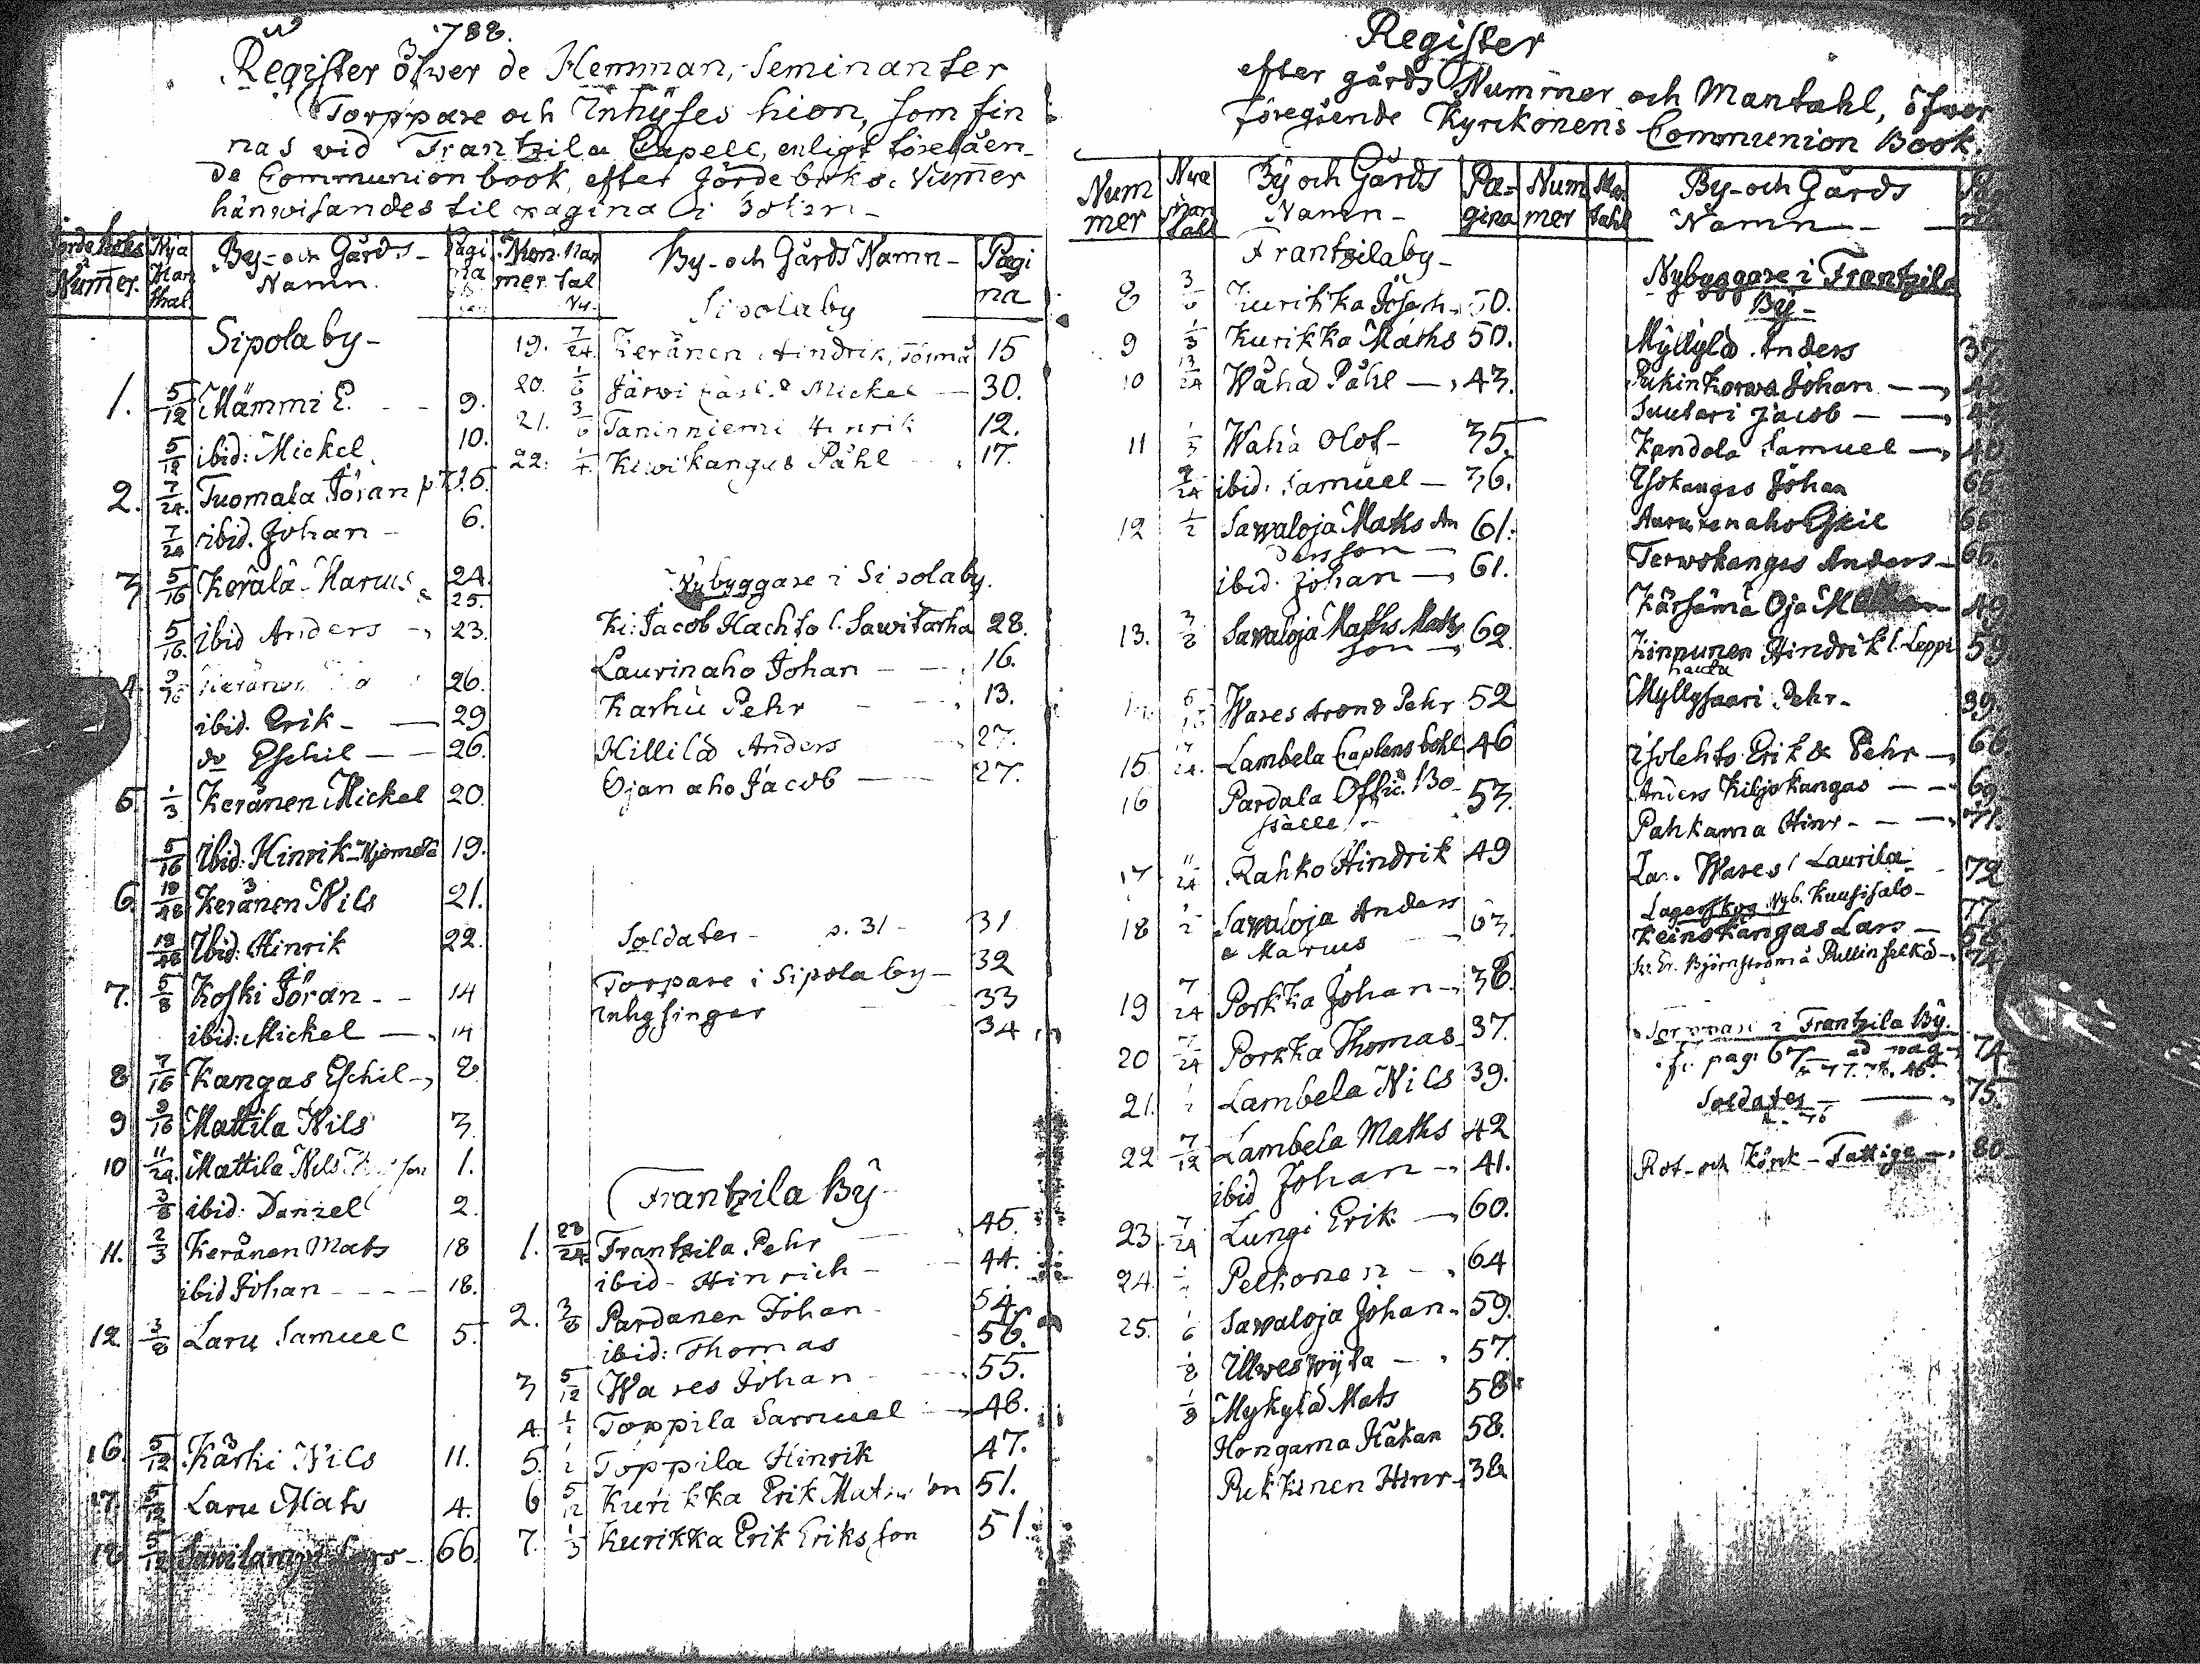 1788.
Register öfwer de Hemman, Seminanter
Torppare och Inhyses hion, som fin
nas vid Frantzila Capell, enligt föreståen-
de Communion book, efter Jordeboks Numer
hänwisandes til pagina i boken-
Jordeboks Numer.
Nya Man thal
By- och Gårds- Namn.
Pagi na
Num mer
Man tal
By- och Gårds Namn-
Pagi na
Sipola by-
1. 5/12 Mämmi E. 9.
5/12 ibid: Mickel. 10.
2. 7/24. Tuomala Jöran p 7.
7/24 ibid. Johan - 6.
3 5/16 Kerälä Marcus & 24. 25.
5/16. ibid Anders 23.
4. 9/16 Keränen 26.
ibid. Erik - 29
do Eschil - - 26.
5. 1/3 Keränen Mickel 20.
5/16 Ibid: Hinrik 19.
6. 19/48 Keränen Nils 21.
19/48 Ibid: Hinrik 22.
7. 5/8 Koski Jöran - - 14
ibid: Mickel 14
8 7/16 Kangas Eschil 8
9 9/16 Mattila Nils 3
10 11/24. Mattila Nils 1.
3/8 ibid: Daniel 2.
11. 2/3 Keränen Mats 18
ibid Johan - - - - 18.
12. 3/8 Laru Samuel 5.
16. 5/12 Kärki Nils 11.
17. 5/12 Laru Mats 4.
18 5/12 Lars - 66.
Sipola by
19. 7/24. Keränen Hindrik, Törmä 15
20. 1/6 Järwi Carl & Mickel 30.
21. 3/8 Taninniemi Hinrik 12.
22. 1/4 Kiwikangas Påhl 17.
Nybyggare i Sipola by.
Ki: Jacob Hachto l. Sawitarha 28.
Laurinaho Johan - - 16.
Karhu Pehr 13.
Hillilä Anders 27.
Ojan aho Jacob 27.
Soldater - p. 31 - 31
Torpare i Sipola by - 32
Inhysingar 33
34
Frantzila By
1. 23/24 Frantzila Pehr 45.
ibid - Hinrich - 44.
2. 3/8 Pardanen Johan - 54.
ibid: Thomas 56.
3 5/12 Wares Johan 55.
4. 1/2 Toppila Samuel 48.
5. 1/2 Toppila Hinrik 47.
6 5/12 Kurikka Erik Matsson 51.
7. 1/3 Kurikka Erik Eriksson 51.
Register
efter gårds Nummer och Mantahl, öfwer
föregående Kyrikonens Communion Book.
Num mer
Nya man tahl
By och Gårds Namn-
Pa- gina
Num mer
Man tahl
By- och Gårds Namn -
Frantzila by-
8 3/8 Kurikka Joseph 50.
9 1/3 Kurikka Maths 50.
10 13/24 Wähä Påhl 43.
11 1/3 Wähä Olof - 35.
9/24 ibid. Samuel - 36.
12 1/2 Sawaloja Maths An 61.
dersson -
ibid. Johan 61.
13. 3/8 Sawaloja Maths Mats 62.
son
Pehr 52
15. 7/24. Lambela Caplens bohl 46
16 Pardala Offic. Bo- 53.
ställe
17 11/24 Rahko Hindrik 49
18 1/2 Sawaloja Anders
& Marcus 63.
19 7/24 Porkka Johan 38.
20 7/24 Porkka Thomas 37.
21. Lambela Nils 39.
22 7/12 Lambela Maths 42
ibid Johan 41.
23 7/24 Lungi Erik 60.
24. Pelkonen - 64
25. 1/6 Sawaloja Johan 59.
1/8 57.
1/8 Mykylä Mats 58
Hongama Håkan 58.
Pukkinen Hinr 38
Nybyggare i Frantzila
By -
Myllylä Anders 37
Pukinkorwa Johan
Suutari Jacob
Kandola Samuel 40
Isokangas Johan 65
Eskil
Terwokangas Anders - 65.
Kärsämä Oja 49
Kinnunen Hindrik l. Leppi 59
hauta
Myllysaari Pehr - 39.
Isolehto Erik & Pehr 66
Anders Kiljokangas 69
Pahkama Hinr - - 71.
Wares l Laurila 72
Nyb. Kuusisalo - 77
Keinokangas Lars
Björnström å
Torppare i Frantzila By.
fr. pag. 67 ad pag. 74.
Soldater 75.
Rot- och Kyrk - Fattige 80